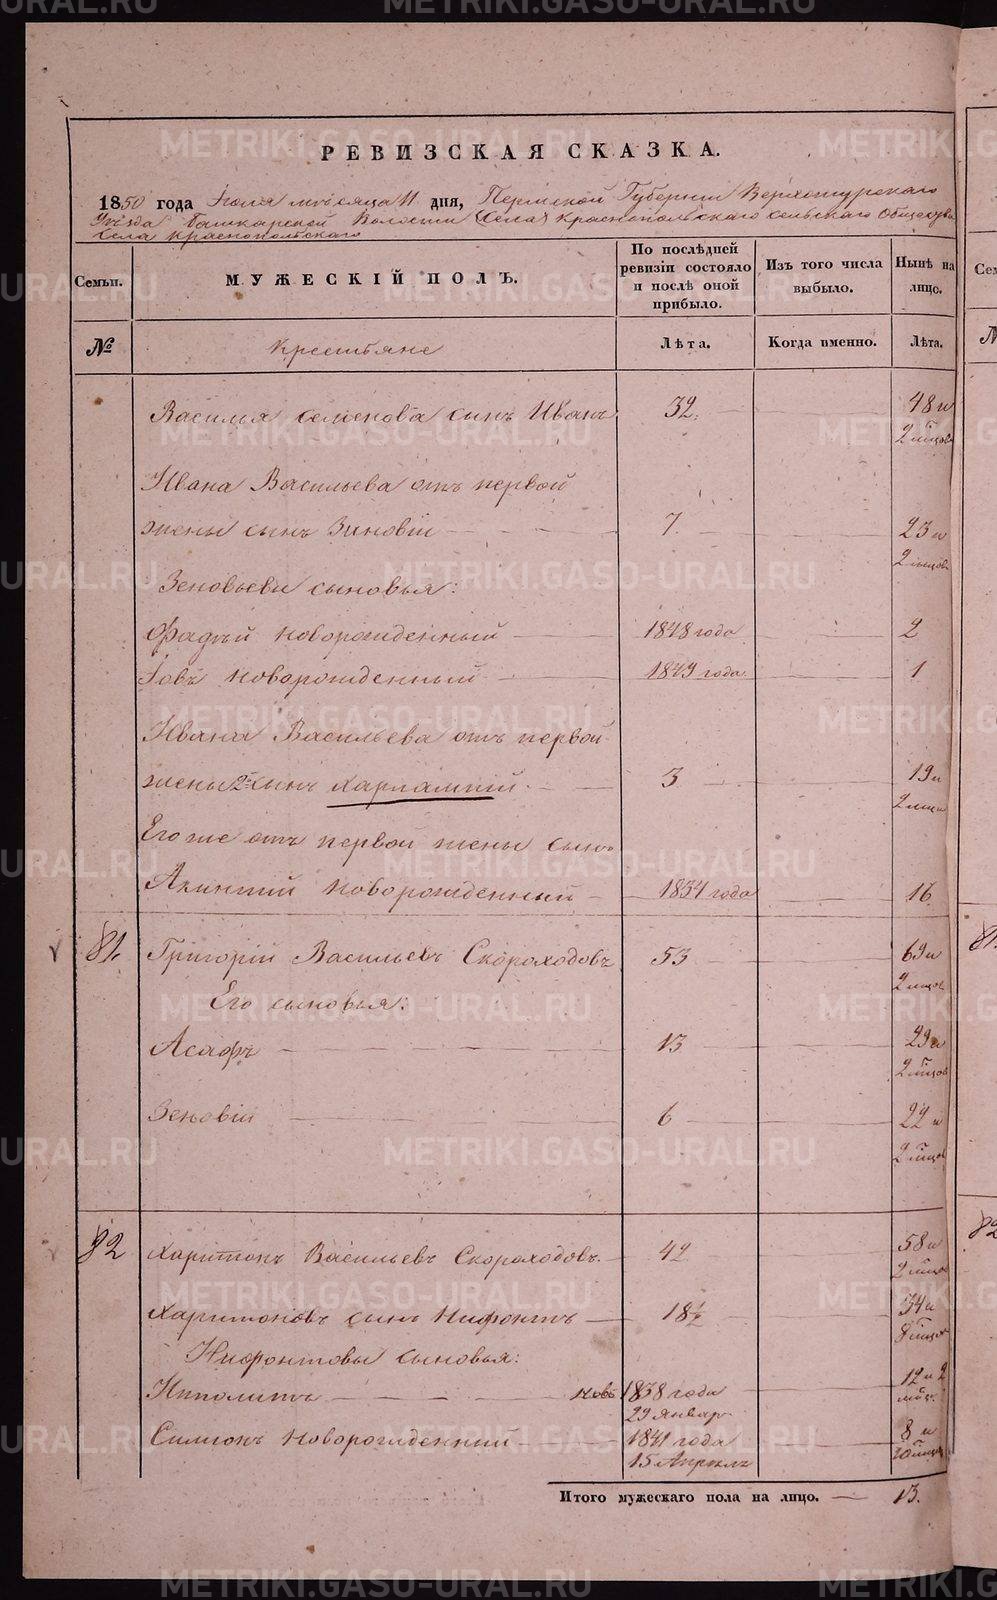 РЕВИЗСКАЯ СКАЗКА.
1850 года Іюля мѣсяца 11 дня, Пермской Губерніи Верхотурскаго
Уѣзда Башкарской Волости Села Краснопольскаго сельскаго Общества
села Краснопольскаго
Семьи. МУЖЕСКІЙ ПОЛЪ. По послѣдней ревизіи состояло и послѣ оной прибыло. Изъ того числа выбыло. Нынѣ на лицо.
№ Крестьяне Лѣта. Когда именно. Лѣта.
Василья Семенова сынъ Иванъ 32. 48 и
2 мѣцовъ
Ивана Васильева отъ первой
жены сынъ Зиновій 7. 23 и
2 мѣцовъ
Зеновьевы сыновья:
Фадѣй новорожденный 1848 года 2
Іовъ новорожденный 1849 года 1
Ивана Васильева отъ первой
жены 2й сынъ Харлампій 3 19 и
2 мѣц
Его же отъ первой жены сынъ
Акинтій новорожденный 1834 года 16
81. Григорій Васильевъ Скороходовъ 53 69 и
2 мѣцов
Его сыновья:
Асафъ 13 29 и
2 мѣцов
Зеновій 6 22 и
2 мѣцов
82 Харитонъ Васильевъ Скороходовъ. 42 58 и
2 мѣцов
Харитоновъ сынъ Нифонтъ 18½ 34 и
8 мѣцов
Нифонтовы сыновья:
Иполитъ новъ 1838 года 12 и 2
29 январ мѣс.
Симионъ новорожденный 1841 года 8 и
15 Апрель 10 мѣцов
Итого мужескаго пола на лицо. 13.
METRIKI.GASO-URAL.RU